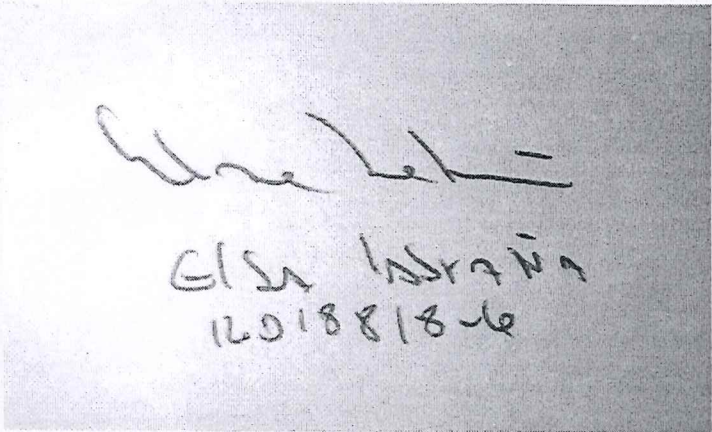 Elsa Labraña
12018818-6